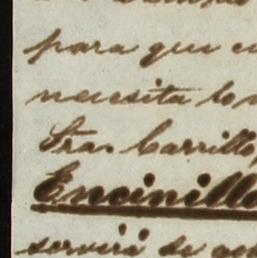 para que en
necesita lo
Sra. Carrillo,
Encinilla
servirá de